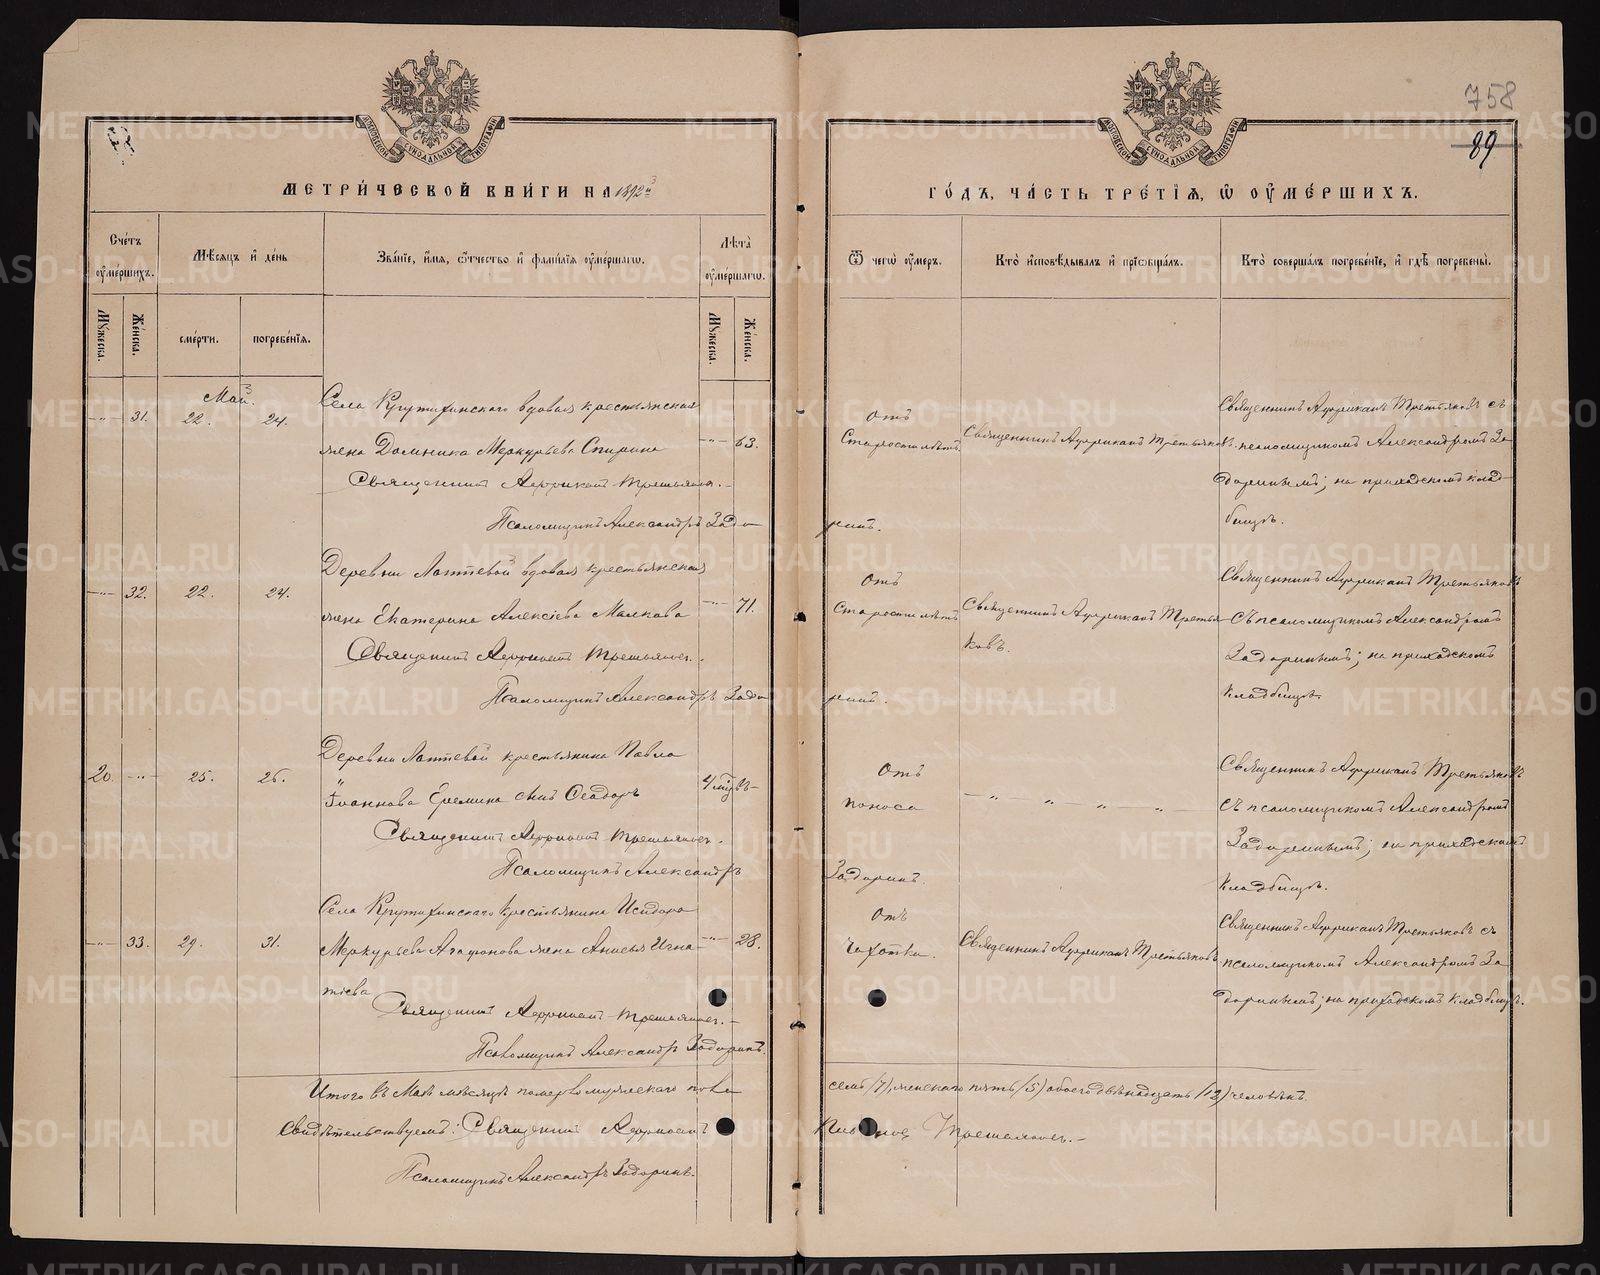 758
89
МОСКОВСКОЙ СѴНОДАЛЬНОЙ ТИПОГРАФІИ
МОСКОВСКОЙ СѴНОДАЛЬНОЙ ТИПОГРАФІИ
МЕТРИ́ЧЕСКОЙ КНИ́ГИ НА 1892й
ГО́ДЪ, ЧА́СТЬ ТРЕ́ТІѦ, Ѡ҆ ОУ҆МЕ́РШИХЪ.
Сче́тъ оу҆ме́ршихъ.
Мꙋ́жеска.
Же́нска.
Мѣ́сѧцъ и҆ де́нь
сме́рти.
погребе́нїѧ.
Зва́нїе, и҆́мѧ, ѻ҆́тчество и҆ фами́лїѧ оу҆ме́ршагѡ.
Лѣ́та оу҆ме́ршагѡ.
Мꙋ́жеска.
Же́нска.
Ѿ чегѡ̀ оу҆́меръ.
Кто̀ и҆сповѣ́дывалъ и҆ прїѡбща́лъ.
Кто̀ соверша́лъ погребе́нїе, и҆ гдѣ̀ погребены̀.
Май.
-"- 31. 22. 24.
Села Крутихинскаго вдовая крестьянская
жена Домника Меркурьева Спирина
-"- 63.
Священникъ Африканъ Третьяковъ.-
Псаломщикъ Александръ Задо
ринъ.
отъ
Старости лѣтъ
Священникъ Африканъ Третьяковъ
Священникъ Африканъ Третьяковъ съ
псаломщикомъ Александромъ За
доринымъ; на приходскомъ клад
бищѣ.
-"- 32. 22. 24.
Деревни Лаптевой вдовая крестьянская
жена Екатерина Алексіева Малкова
-"- 71.
Священникъ Африканъ Третьяковъ.
Псаломщикъ Александръ Задо
ринъ.
Отъ
Старости лѣтъ
Священникъ Африканъ Третья
ковъ.
Священникъ Африканъ Третьяковъ
съ псаломщикомъ Александромъ
Задоринымъ; на приходскомъ
кладбищѣ.
20. -"- 25. 26.
Деревни Лаптевой крестьянина Павла
Іоаннова Еремина сынъ Ѳеодоръ
4 мѣс.
Священникъ Африканъ Третьяковъ.
Псаломщикъ Александръ
Задоринъ.
Отъ
поноса
- " " " "
Священникъ Африканъ Третьяковъ
съ псаломщикомъ Александромъ
Задоринымъ; на приходскомъ
кладбищѣ.
-"- 33. 29. 31.
Села Крутихинскаго крестьянина Исидора
Меркурьева Агафонова жена Анисья Игна
тіева
-"- 28.
Священникъ Африканъ Третьяковъ.-
Псаломщикъ Александръ Задоринъ.
Отъ
чахотки.
Священникъ Африканъ Третьяковъ
Священникъ Африканъ Третьяковъ съ
псаломщикомъ Александромъ За
доринымъ; на приходскомъ кладбищѣ.
Итого въ Маѣ мѣсяцѣ померло мужескаго пола
семь /7/, женскаго пять /5/ обоего двѣнадцать /12/ человѣкъ.
Свидѣтельствуемъ: Священникъ Африканъ
Третьяковъ.-
Псаломщикъ Александръ Задоринъ.
METRIKI.GASO-URAL.RU